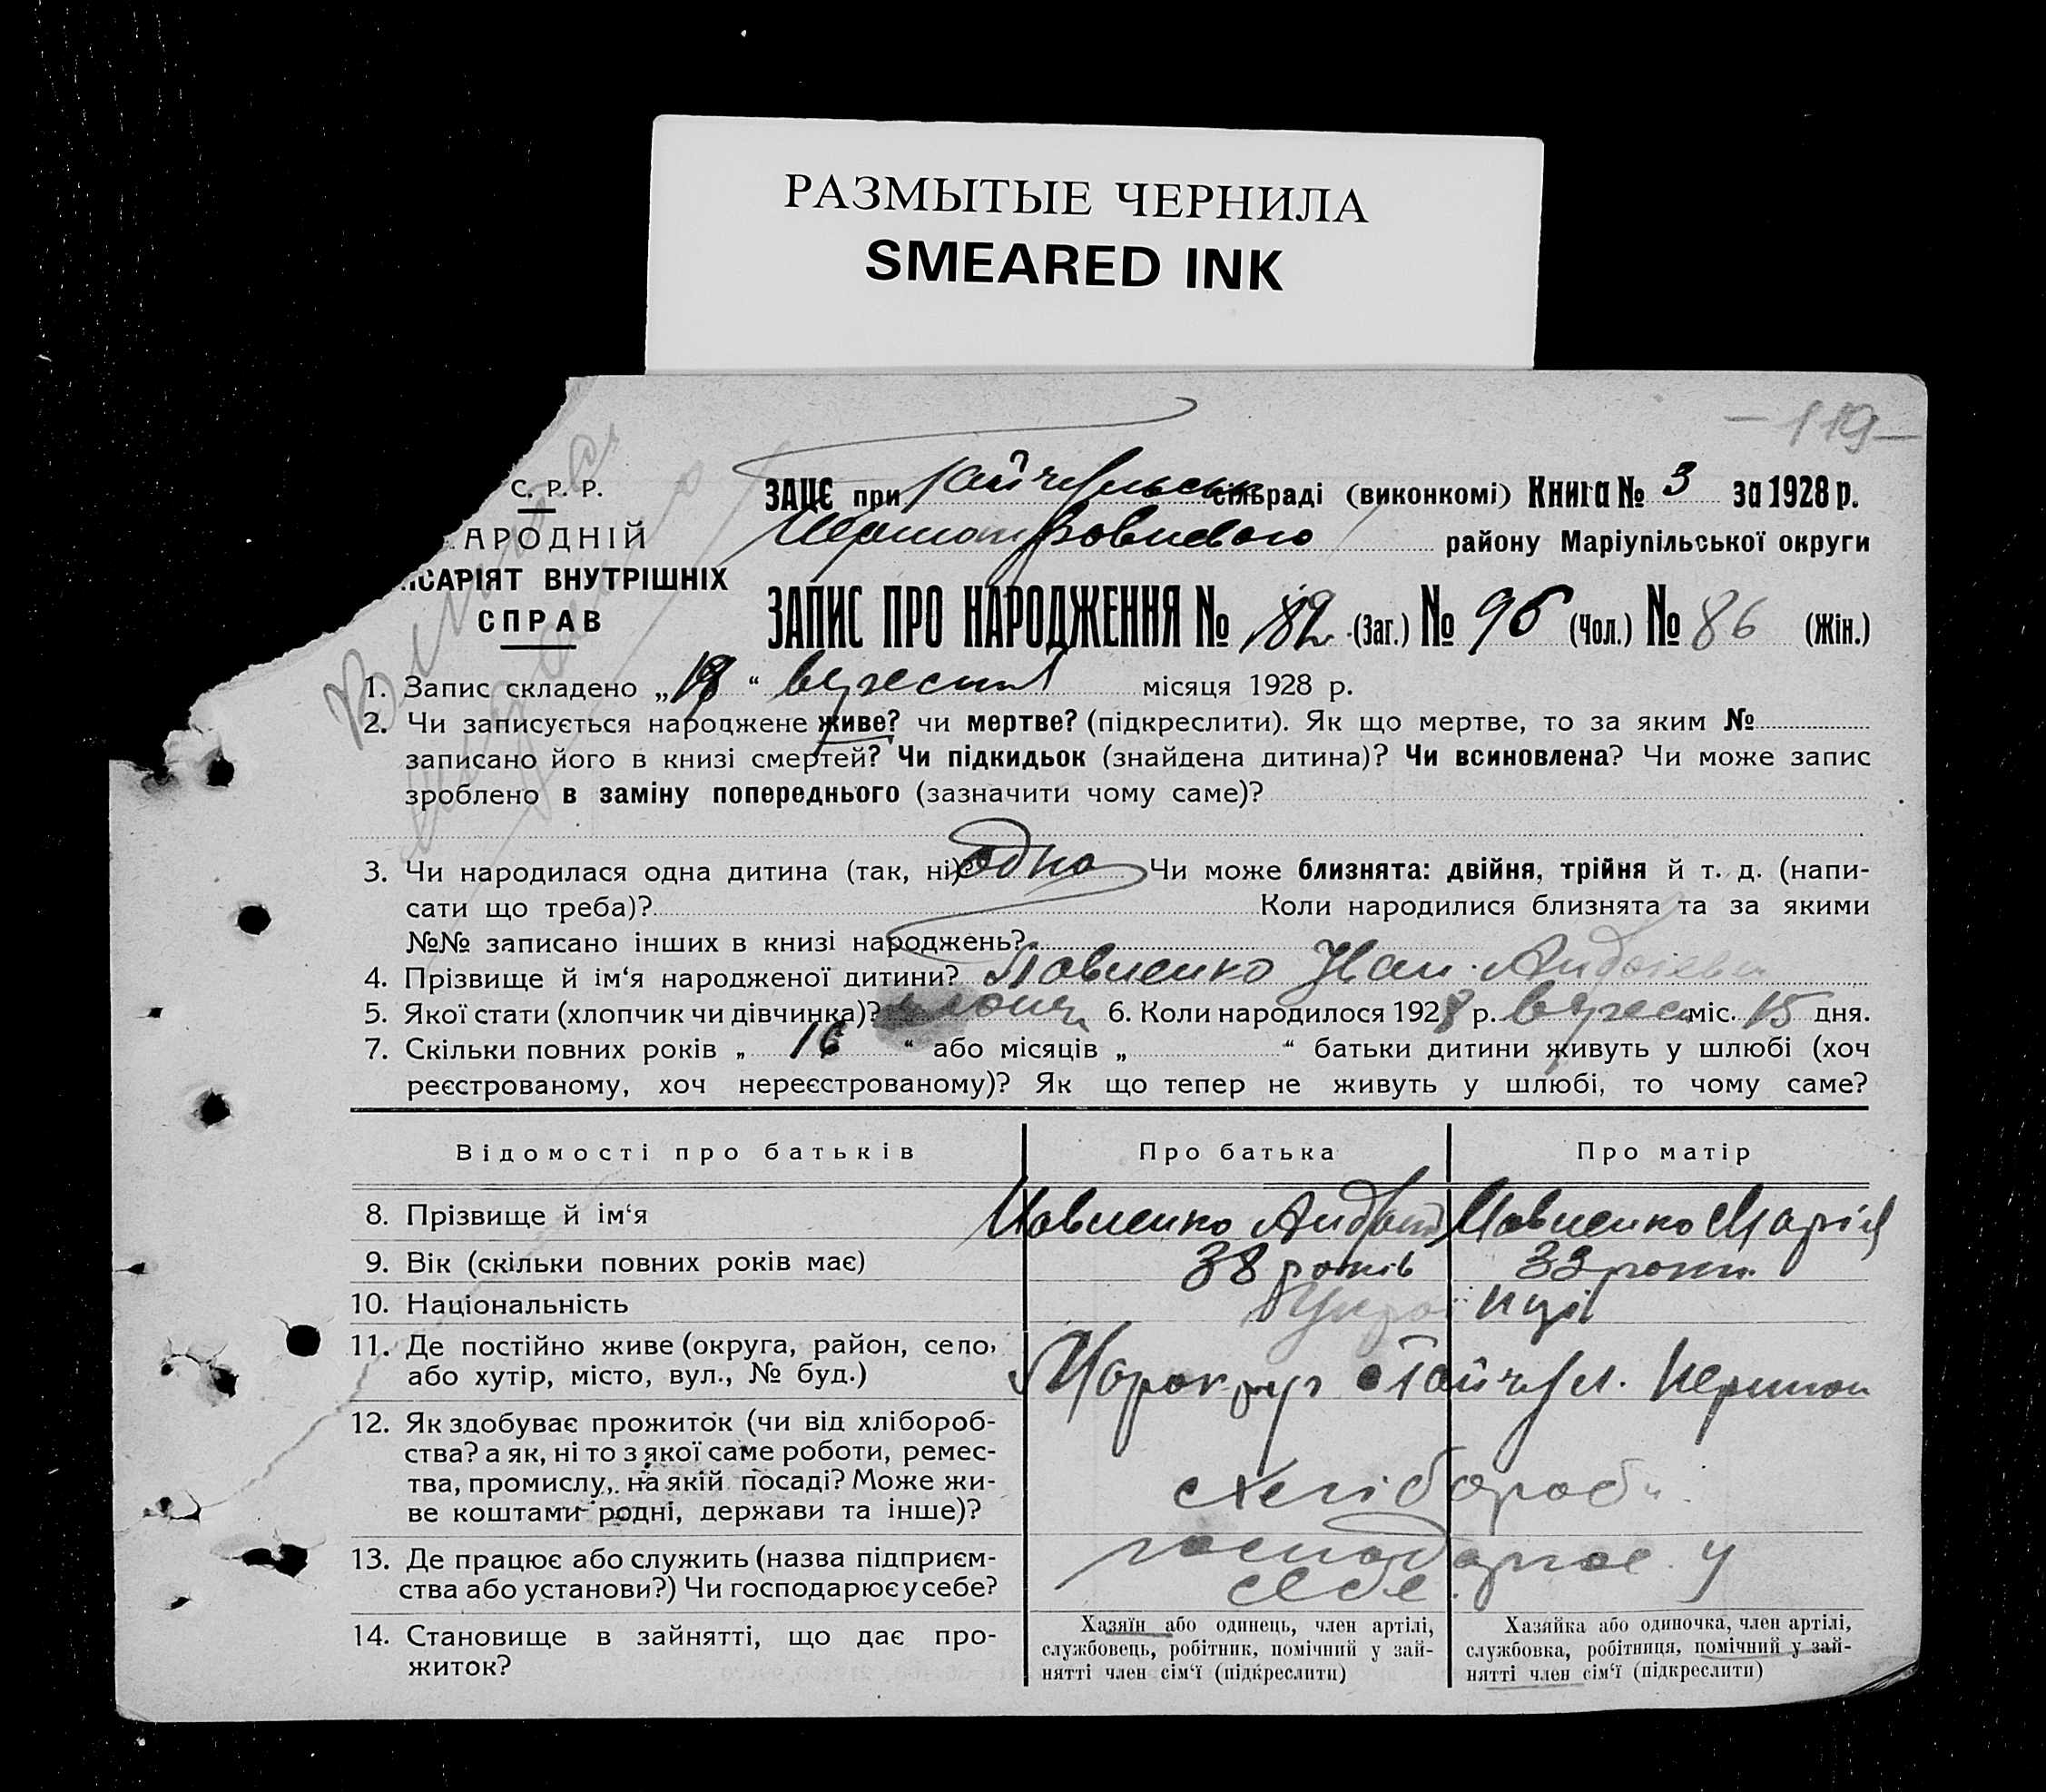 РАЗМЫТЫЕ ЧЕРНИЛА
SMEARED INK
-119-
С. Р. Р.
АРОДНІЙ
ІСАРІЯТ ВНУТРІШНІХ
СПРАВ
ЗАЦС при сільраді (виконкомі) Книга № 3 за 1928 р.
району Маріупільської округи
ЗАПИС ПРО НАРОДЖЕННЯ № 182 (Заг.) № 96 (Чол.) № 86 (Жін.)
1. Запис складено „ “ вересня місяця 1928 р.
2. Чи записується народжене живе? чи мертве? (підкреслити). Як що мертве, то за яким №
записано його в книзі смертей? Чи підкидьок (знайдена дитина)? Чи всиновлена? Чи може запис
зроблено в заміну попереднього (зазначити чому саме)?
3. Чи народилася одна дитина (так, ні)? одна Чи може близнята: двійня, трійня й т. д. (напи-
сати що треба)? Коли народилися близнята та за якими
№№ записано інших в книзі народжень?
4. Прізвище й ім‘я народженої дитини? Іван
5. Якої стати (хлопчик чи дівчинка)? 6. Коли народилося 1928 р. верес міс. 15 дня.
7. Скільки повних років „ 16 “ або місяців „ “ батьки дитини живуть у шлюбі (хоч
реєстрованому, хоч нереєстрованому)? Як що тепер не живуть у шлюбі, то чому саме?
Відомості про батьків Про батька Про матір
8. Прізвище й ім‘я Андрій Марія
9. Вік (скільки повних років має) 38 років 33 роки
10. Національність Українці
11. Де постійно живе (округа, район, село,
або хутір, місто, вул., № буд.)
12. Як здобуває прожиток (чи від хлібороб-
ства? а як, ні то з якої саме роботи, ремес-
тва, промислу, на якій посаді? Може жи-
ве коштами родні, держави та інше)?
хлібороби
13. Де працює або служить (назва підприєм-
ства або установи?) Чи господарює у себе?
господарює у
себе
14. Становище в зайнятті, що дає про-
житок?
Хазяїн або одинець, член артілі,
службовець, робітник, помічний у зай-
нятті член сім‘ї (підкреслити)
Хазяйка або одиночка, член артілі,
службовка, робітниця, помічний у зай-
нятті член сім‘ї (підкреслити)